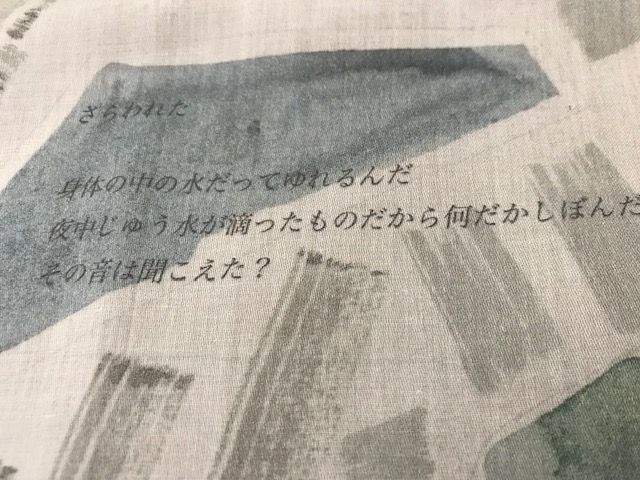 さらわれた
身体の中の水だってゆれるんだ
夜中じゅう水が滴ったものだから何だかしぼんだ
その音は聞こえた？